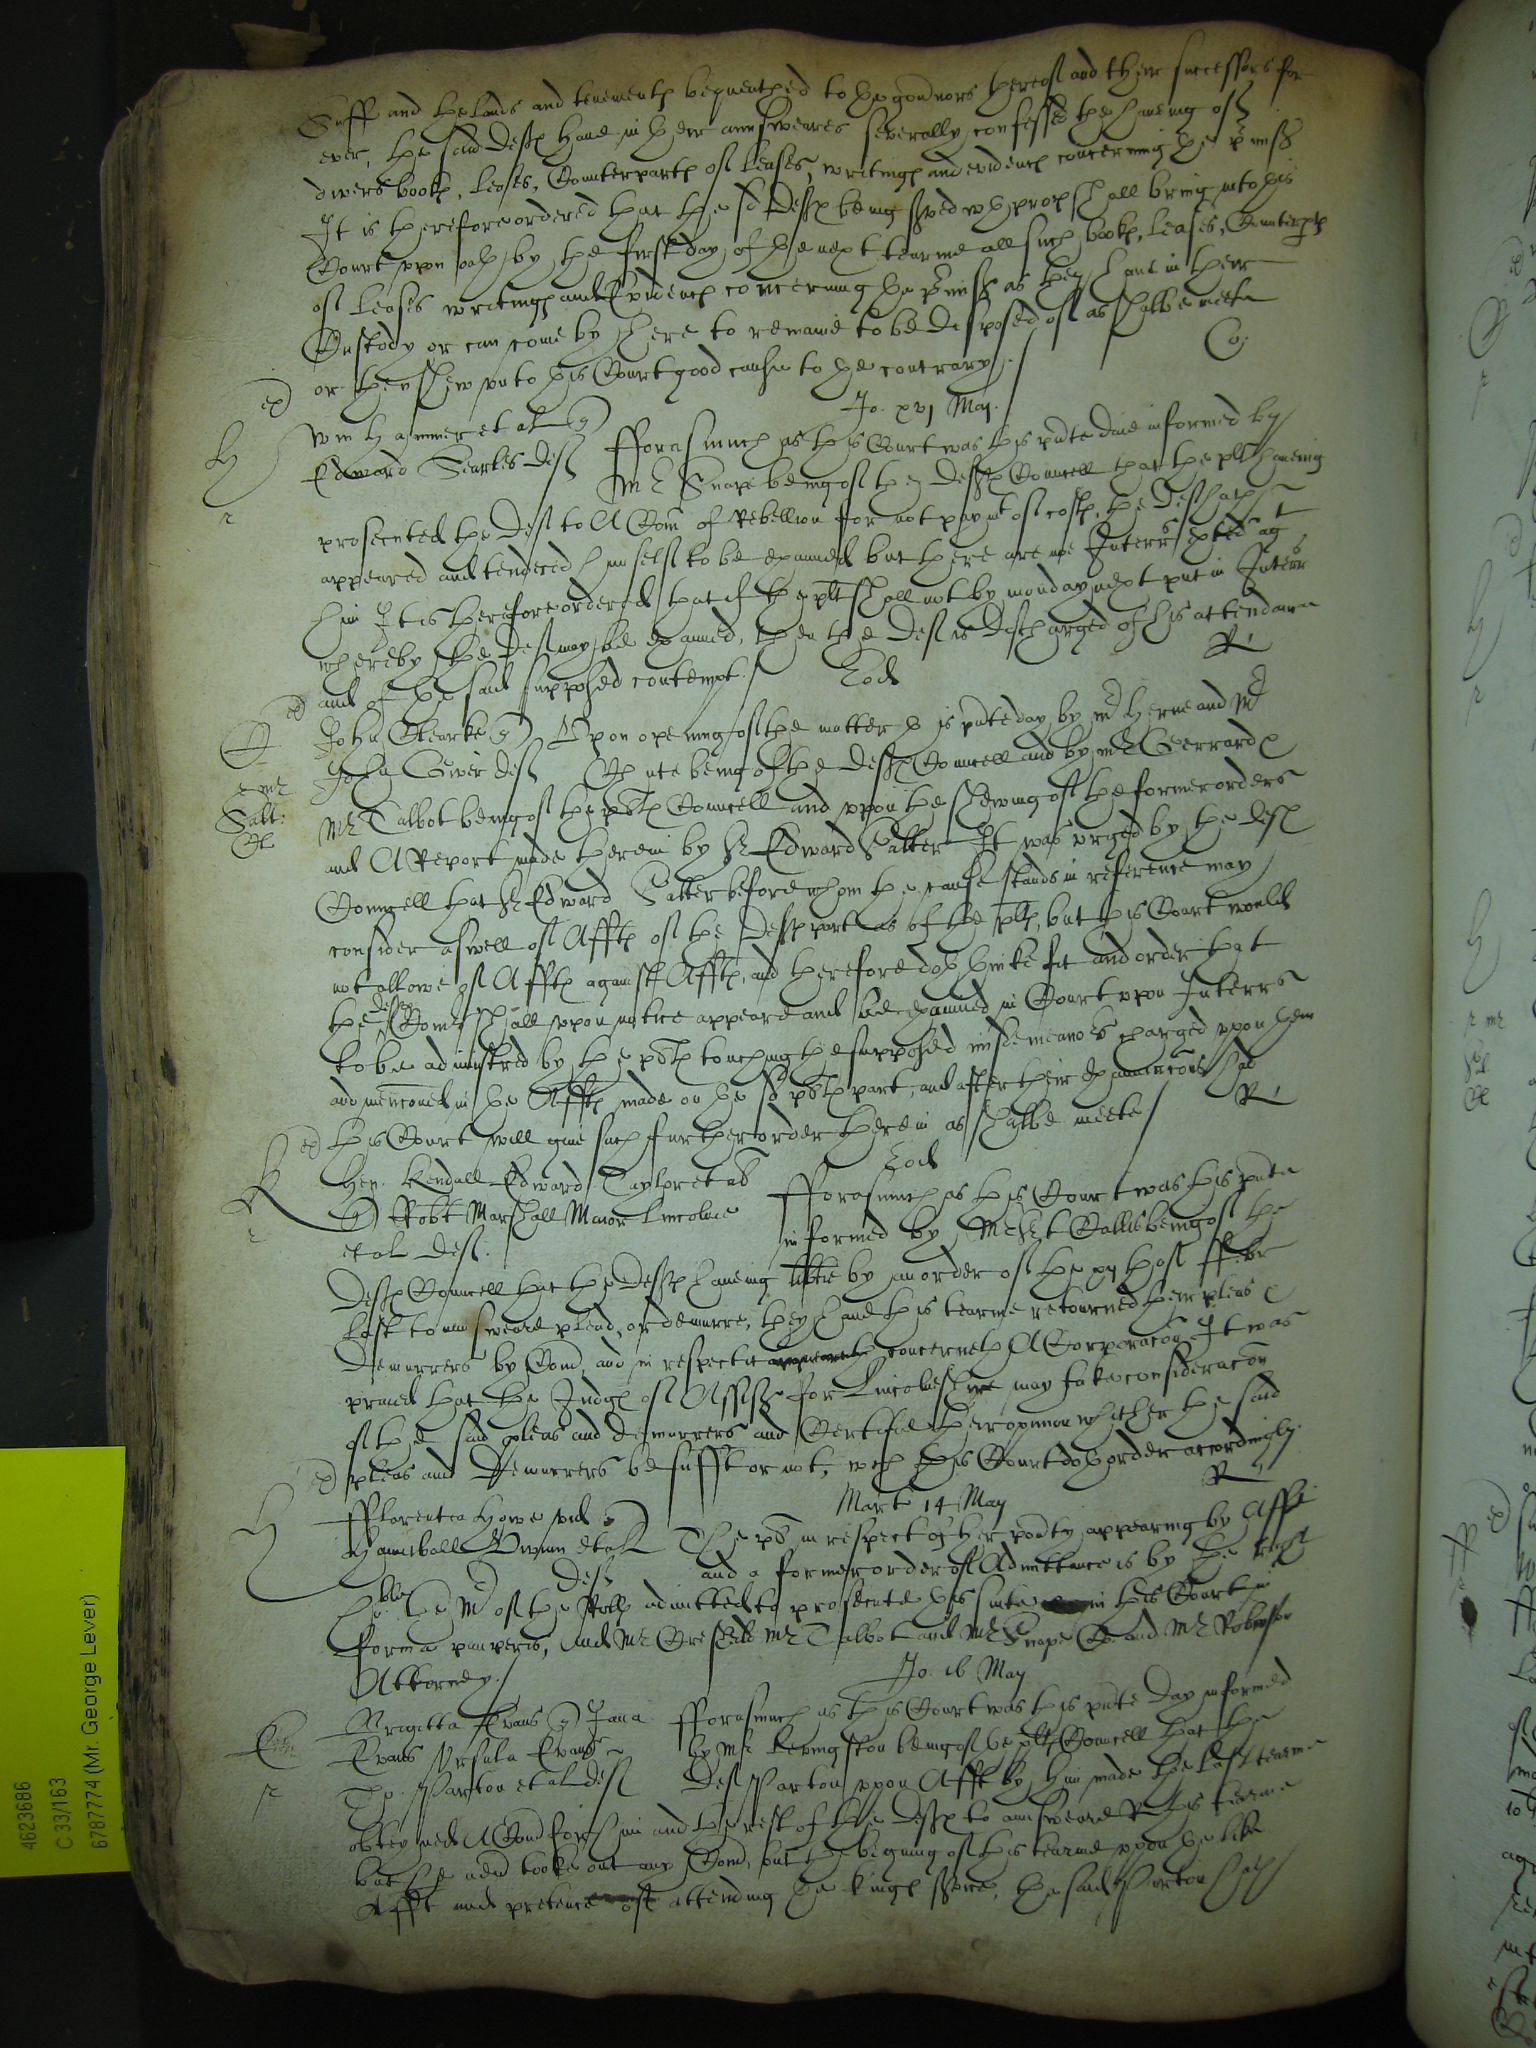 Suff and the lands and tenements bequeathed to the gouernors thereof and their successors for
ever, the said defts haue in their answeares severally confessed the haueing of
divers bookes, leases, Counterparts of leases, writings and evidences concerning the p'misss
It is therefore ordered that the sd defts being serued wth proces shall bring into this
Court vpon oath by the first day of the next tearme all such bookes, leases, Counterpts
of leases writings and Evidences concerning the p'misss as they haue in their
Custody or can come by there to remaine to be disposed of as shalbe meete
or they shew vnto this Court good cause to the contrary. Co.
Jo. xvj Maij.
Wm Hammer et al q
Edward Searles def
fforasmuch as this Court was this pnte daie informed by
Mr Snape being of the defts Councell that the plt haueing
prosecuted the def to A Com of Rebellion for not paymt of costs, the def hath
appeared and tendered himself to be examined but there are noe Interr exhted agt
him It is therefore ordered that if the plt shall not by monday next put in Interr
whereby the def may be examined, then the def is discharged of his attendance
and of the said supposed contempt. R
Eod
John Clearke q
John Gwier def
Vpon opening of the matter this pnte day by mr Herne and Mr
being of the defts Councell and by mr Gerrard &
Mr Talbot being of the plts Councell and vpon the shewing of the former orders
and A Report made therein by Sr Edward Salter It was vrged by the defts
Councell that Sr Edward Salter before whom the cause stands in reference may
consider aswell of Affts of the defts part as of the plts, but this Court would
not allowe of Affts against Affts, and therefore doth thinke fit and order that
the defts Comrs shall vpon notice appeare and be examined in Court vpon Interrs
to be administred by the plts touching the supposed misdemeanors charged vpon them
and menconed in the Affts made on the sd plts part, and after their examinacons had
this Court will giue such further order therein as shalbe meete R
Eod
Hen. Kendall Edward Taylor et al
q Robt Marshall Maior Lincolne
et al def.
fforasmuch as this Court was this pnte
informed by Mr Sert Callis being of the
defts Councell that the defts haueing libtie by an order of the xijth of ffebr
last to answeare plead, or demurre, they haue this tearme retourned their pleas &
demurrers by Com, and in respect it concerneth A Corporacon It was
praied that the Judges of Assise for Lincolneshire may take consideracon
of the said pleas and demurrers and Certifie their opinion whither the said
pleas and Demurrers be suffit or not, wch this Court doth order accordingly.
R
Mart 14 May
fflorentia Howe vid q
Hanniball et al
def
The plt in respect of her pouty appearing by Afft
and a former order of Admittance is by the right
hoble the Mr of the Rolls admitted to prosecute this suite in this Court in
forma pauperis, and Mr Talbot and Mr Snape Co. and Mr Robinson
Attorney.
Jo. 16 May
Brigitta Evans q Jana
Evans Vrsula Evans
Tho. Parton et al def
fforasmuch as this Court was this pnte day informed
by Mr Levingston being of the plts Councell that the
def Parton vpon Afft by him made the last tearme
obteyned A Com for him and the rest of the defts to answeare this tearme
but he neuer tooke out any Com, but the begining of this tearme vpon the like
Afft and pretence of attending the kings service, the said Parton hath
ed
H
r
mr
Salt:
4623686
C 33/163
6787774 (Mr. George Lever)